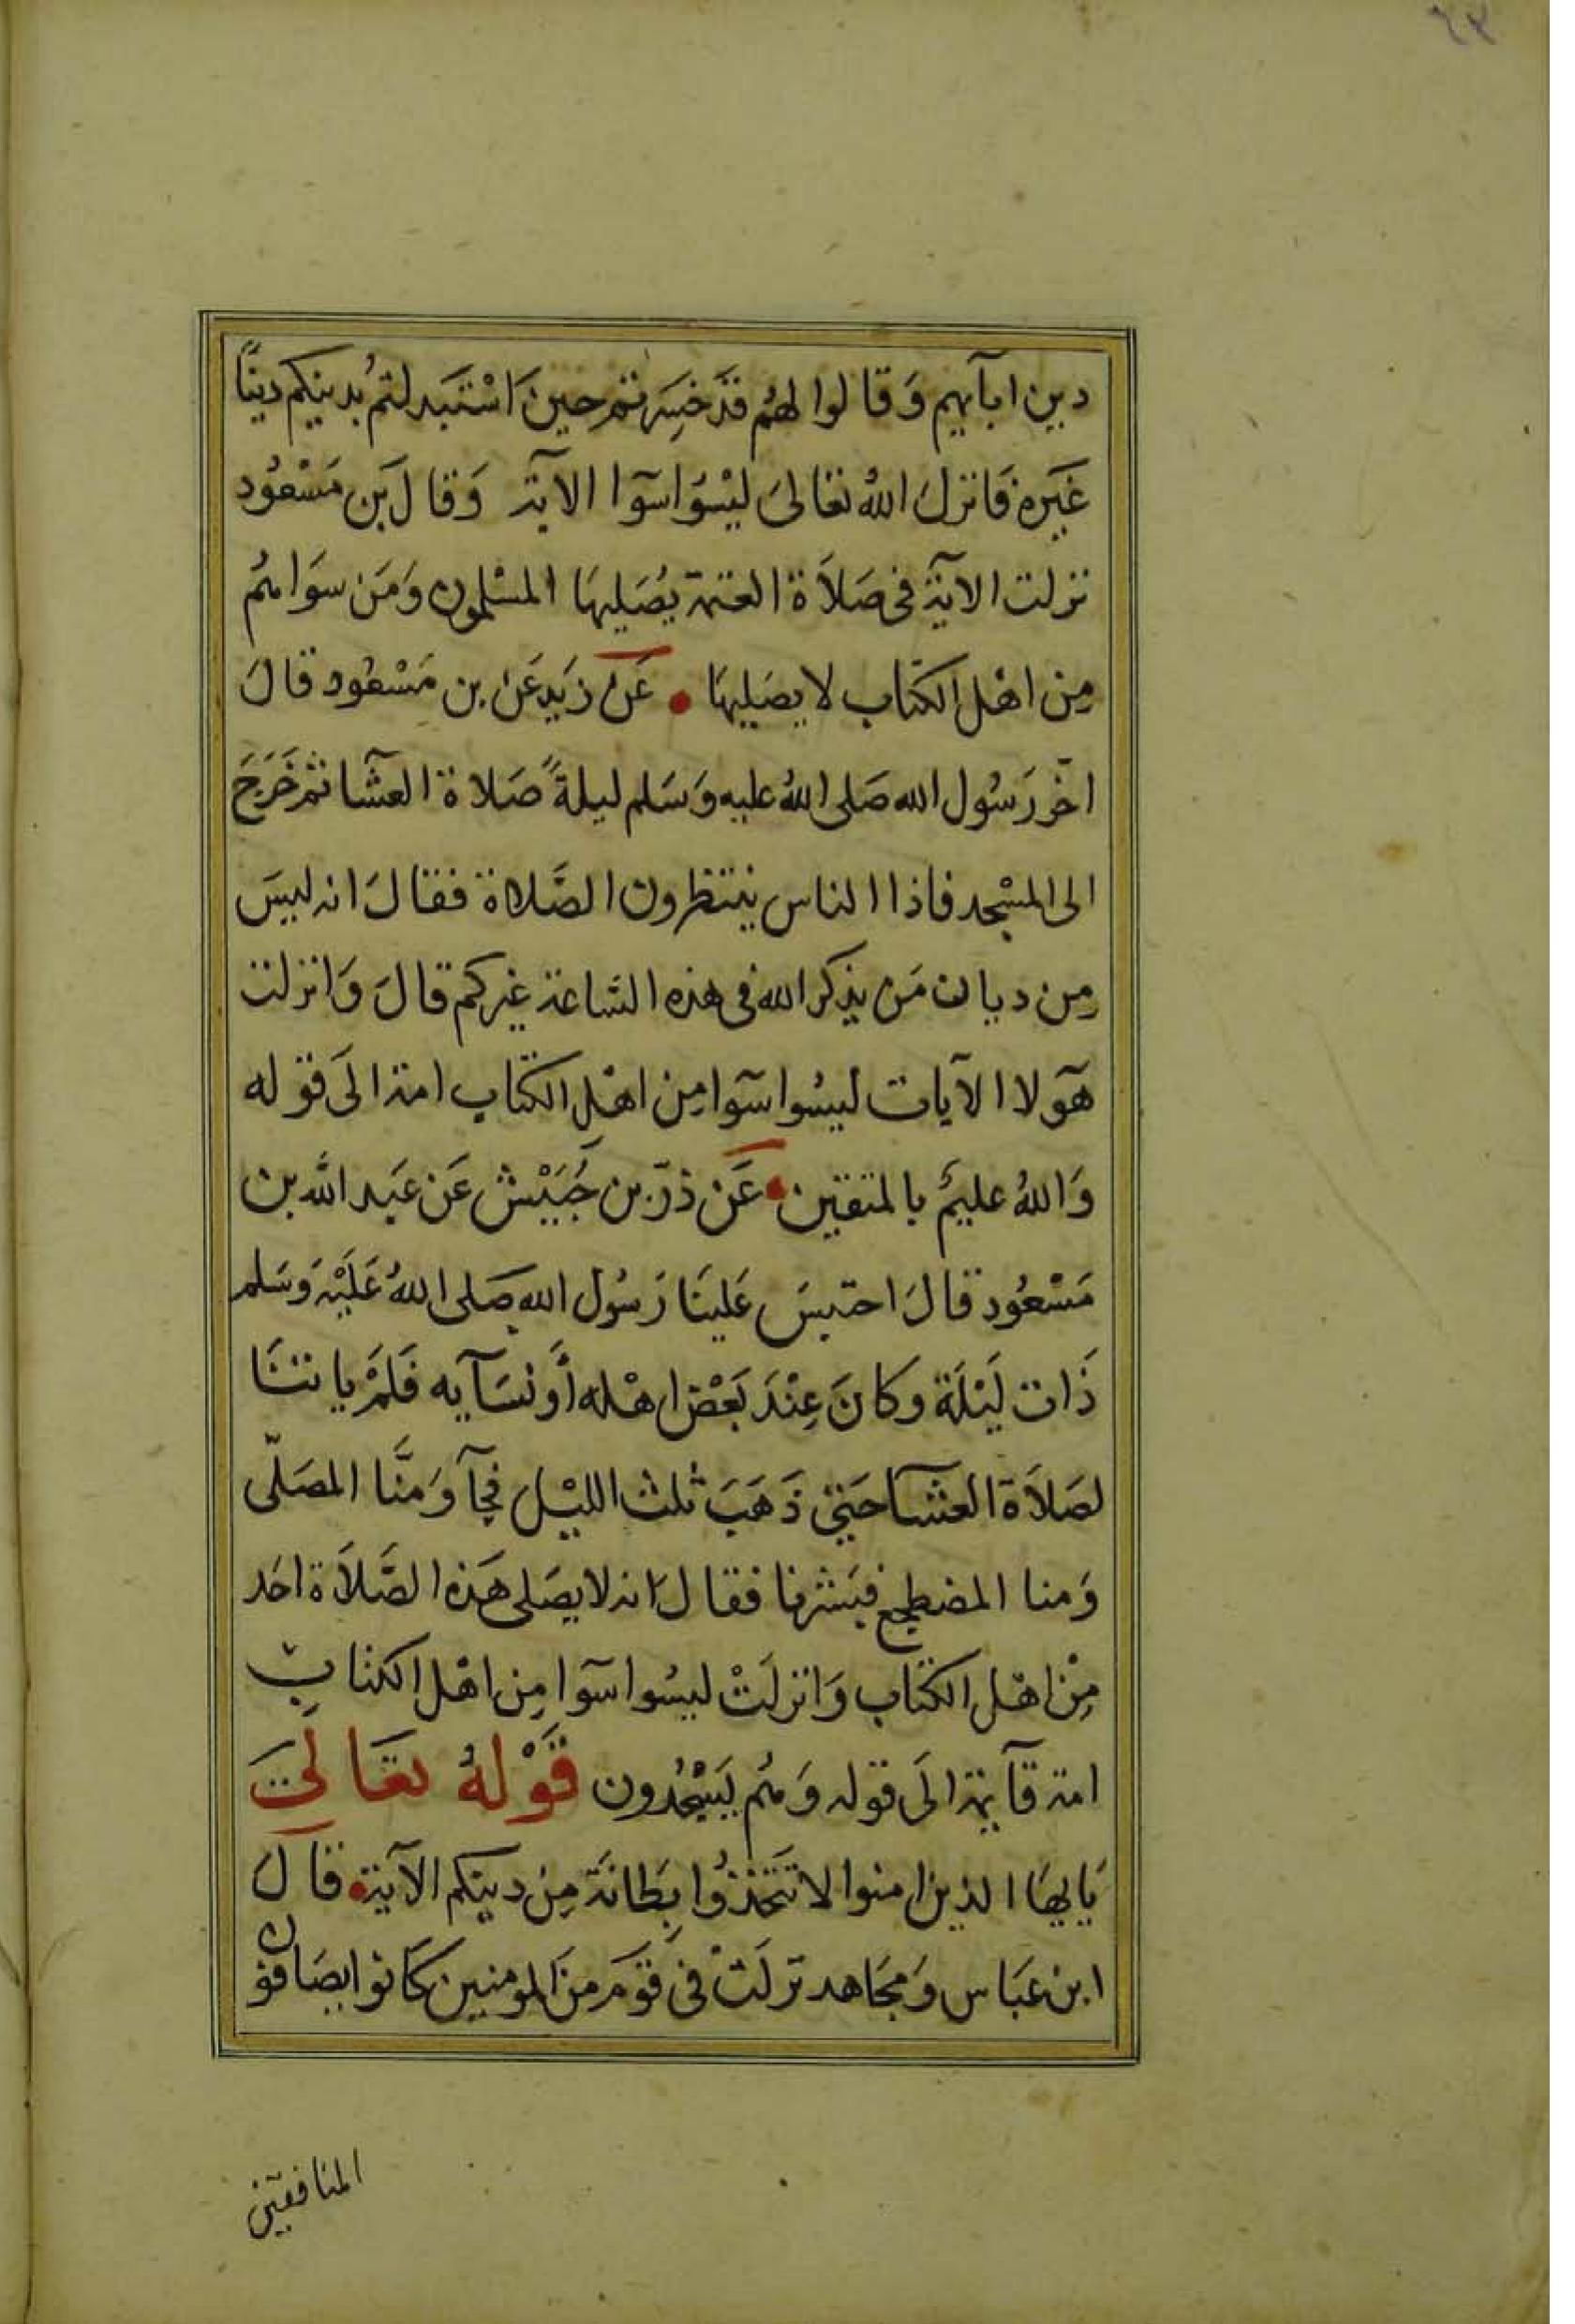 ٦٣
دين ابآيهم وَقالوا لهُم قدَ خسِرتم حينَ اسْتبَدلتمُ بدينكم دينًا
غيَره فانزلَ اللهُ تعالىَ ليْسُوا سَوآا الايَة وَقالَ بن مَسْعُود
نزلت الايَة في صَلاَة العتمة يُصَليهَا المسْلمون وَمَن سوَاهُم
مِن اهْل الكتاب لا يصَليهَا • عَن زيَد عَن بن مَسْعُود قالَ
اخّر رَسُول الله صَلى اللهُ عليه وَسَلم ليلةً صَلاة العشآ ثم خَرَجَ
الى المسْجد فاذا الناس ينتظرون الصَّلاة فقالَ انه ليسَ
مِن ديان مَن يذكر الله في هذه السَاعة غيركم قالَ وَانزلت
هَولا الآيات ليسُوا سَوآا مِن اهْلِ الكتاب امة الىَ قوله
وَاللهُ عليمٌ بالمتقين • عَن ذرّ بن حُبَيْش عَن عَبد الله بن
مَسْعُود قالَ احتبسَ عَلينَا رَسُول الله صَلى اللهُ عَليْهِ وَسَلم
ذَات ليْلَة وكانَ عِنْدَ بَعْض اهْله أَو نسَآيه فَلَمْ ياتنَا
لصَلاَة العشآ حَتى ذَهَبَ ثلث الليْل فجآ وَمنَّا المصَلّى
وَمنا المضطجع فبَشرنا فقالَ انه لا يصَلى هَذه الصَّلاَة احَد
مِنْ اهْل الكتاب وَانزلَتْ ليسُوا سَوآا مِن اهْل الكتابِ
امة قآيمة الىَ قوله وَهُم يَسْجُدون قَوْلهُ تعَالىَ
يَايهَا الذين امنوا لا تتَّخذُوا بِطانَة مِن دينكم الآية • قالَ
ابن عَباس وَمجَاهد نزلَتْ في قوَم مِنَ المومنين كَانوا يصَافون
المنافقين